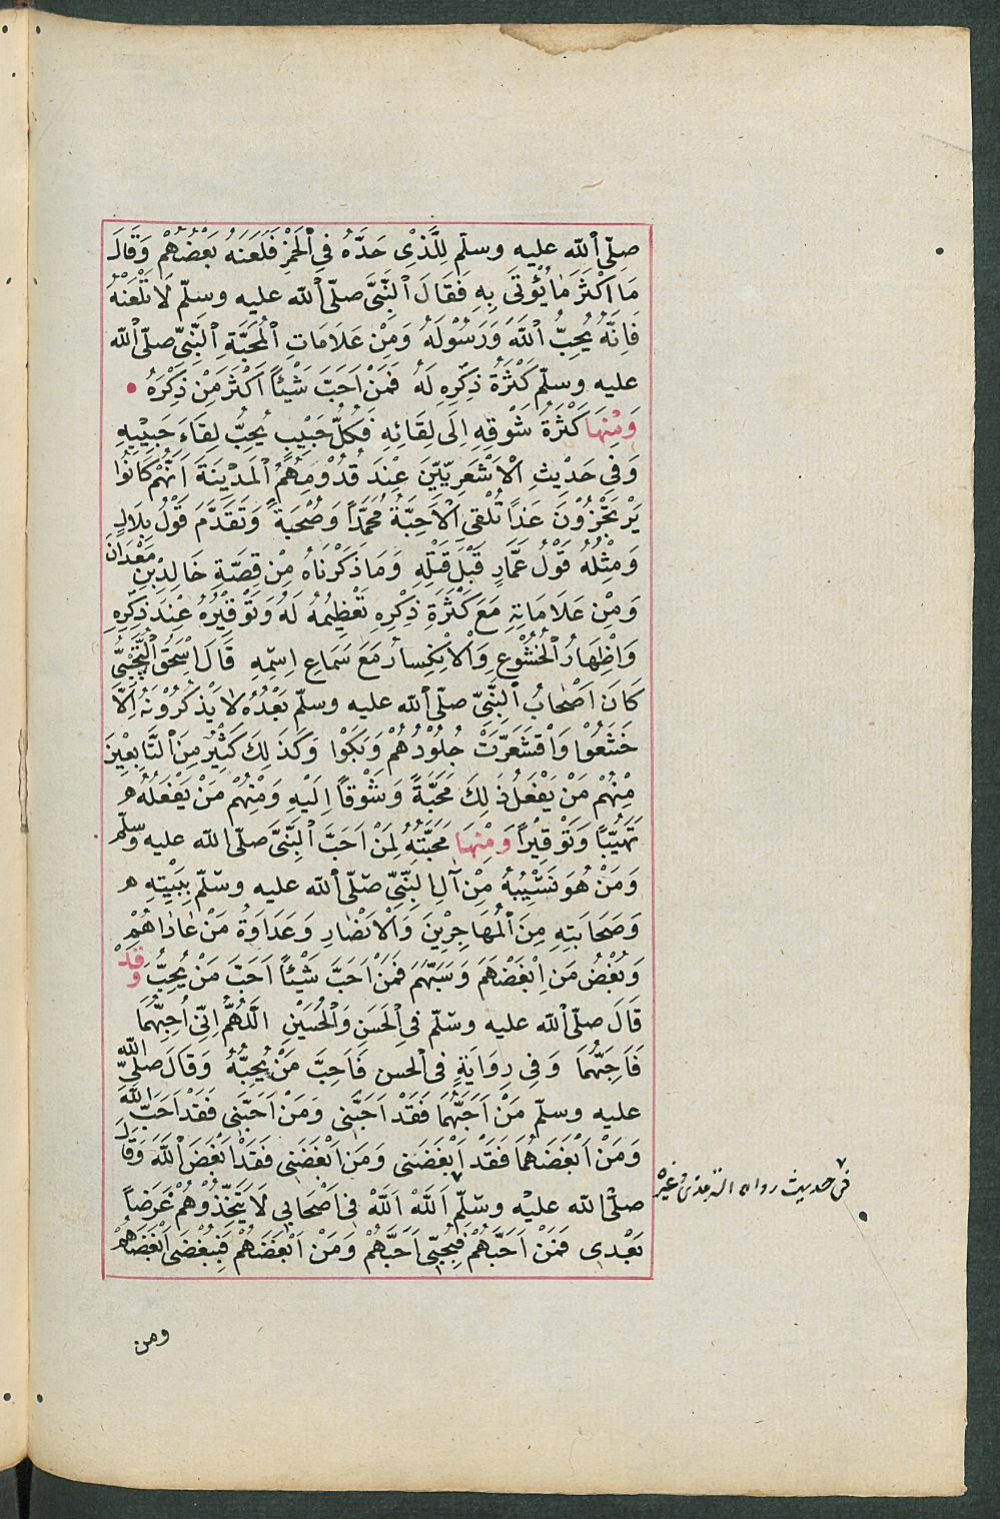 صلّى ٱللّه عليه وسلّم لِلَّذِى حَدَّهُ فِى ٱلْخَمْرِ فَلَعَنَهُ بَعْضُهُمْ وَقَالَ
مَا اَكْثَرَ مَا يُؤْتَى بِهِ فَقَالَ ٱلنَّبِىُّ صلّى ٱللّه عليه وسلّم لَا تَلْعَنْهُ
فَاِنَّهُ يُحِبُّ ٱللّٰهَ وَرَسُولَهُ وَمِنْ عَلَامَاتِ ٱلْمَحَبَّةِ ٱلنَّبِىِّ صلّى ٱللّه
عليه وسلّم كَثْرَةُ ذِكْرِهِ لَهُ فَمَنْ اَحَبَّ شَيْئًا اَكْثَرَ مِنْ ذِكْرَهُ
وَمِنْهَا كَثْرَةُ شَوْقِهِ اِلَى لِقَائِهِ فَكُلُّ حَبِيْبٍ يُحِبُّ لِقَاءَ حَبِيْبِهِ
وَفِى حَدِيْثِ الْاَشْعَرِيِّيْنَ عِنْدَ قُدُوْمِهُمُ ٱلْمَدِيْنَةَ اَنَّهُمْ كَانُوا
يَرْتَجِزُوْنَ غَدًا نَلْقَى الْاَحِبَّةُ مُحَمَّدًا وَصُحْبَهُ وَتَقَدَّمَ قَوْلُ بِلَالٍ
وَمِثْلُهُ قَوْلُ عَمَّارٍ قَبْلَ قَتْلِهِ وَمَا ذَكَرْنَاهُ مِنْ قِصَّةِ خَالِدِ بْنِ مَعْدَانَ
وَمِنْ عَلَامَاتِهِ مَعَ كَثْرَةِ ذِكْرِهِ تَعْظِيْمُهُ لَهُ وَتَوْقِيْرُهُ عِنْدَ ذِكْرِهِ
وَاِظْهَارُ ٱلْخُشُوْعِ وَالْاِنْكِسَارُ مَعَ سَمَاعِ اِسْمِهِ قَالَ اِسْحٰقُ التُّجِيْبِىُّ
كَانَ اَصْحَابُ ٱلنَّبِىِّ صلّى ٱللّه عليه وسلّم بَعْدَهُ لَا يَذْكُرُوْنَهُ اِلَّا
خَشَعُوْا وَاقْشَعَرَّتْ جُلُوْدُهُمْ وَبَكَوْا وَكَذَلِكَ كَثِيْرٌ مِنَ ٱلتَّابِعِيْنَ
مِنْهُمْ مَنْ يَفْعَلُ ذَلِكَ مَحَبَّةً وَشَوْقًا اِلَيْهِ وَمِنْهُمْ مَنْ يَفْعَلُهُ
تَهَيُّبًا وَتَوْقِيْرًا وَمِنْهَا مَحَبَّتُهُ لِمَنْ اَحَبَّ ٱلنَّبِىَّ صلّى اللّه عليه وسلّم
وَمَنْ هُوَ نَسْيِبُهُ مِنْ آلِ ٱلنَّبِىِّ صلّى ٱللّه عليه وسلّم بِبَيْتِهِ
وَصَحَابَتِهِ مِنَ ٱلْمُهَاجِرِيْنَ وَالْاَنْصَارِ وَعَدَاوَةُ مَنْ عَادَاهُمْ
وَبُغْضُ مَنِ اِبْغَضْهَمَ وَسَبَّهُمَ فَمَنْ اَحَبَّ شَيْئًا اَحَبَّ مَنْ يُحِبُّ وَقَدْ
قَالَ صلّى ٱللّه عليه وسلّم فِى ٱلْحَسَنِ وَٱلْحُسَيْنِ اللّٰهُمَّ اِنِّى اُحِبُّهُمَا
فَاَحِبَّهُمَا وَفِى رِوَايَةٍ فِى ٱلْحسن فَاَحِبَّ مَنْ يُحِبُّهُ وَقَالَ صلّى اللّه
عليه وسلّم مَنْ اَحَبَّهُمَا فَقَدْ اَحَبَّنِى وَمَنْ اَحَبَّنِى فَقَدْ اَحَبَّ اللّٰهَ
وَمَنْ اَبْغَضَهُمَا فَقَدْ اَبْغَضَنِى وَمَنْ اَبْغَضَنِى فَقَدْ اَبْغَضَ ٱللّٰهَ وَقَالَ
صلّى اللّه عليْه وسلّم اَللّٰهَ اَللّٰهَ فِى اَصْحَابِى لَا يَتَّخِذُوْهُمْ غَرَضًا
بَعْدِى فَمَنْ اَحَبَّهُمْ فَبِحُبِّى اَحَبَّهُمْ وَمَنْ اَبْغَضَهُمْ فَبِبُغْضِى اَبْغَضَهُمْ
فى حديث رواه الترمذى وغيره
ومن